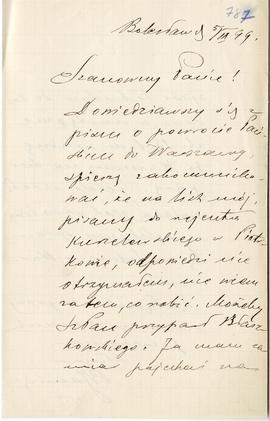 787
Bolesław d 5/IX 99.
Szanowny Panie!
Dowiedziawszy się z
pisma o powrocie Pań-
skim do Warszawy,
spieszę zakomuniko-
wać, że na list mój,
pisany do rejenta
w Piotr-
kowie, odpowiedzi nie
otrzymałem, nie wiem
zatem, co robić. Możeby
Pan przyparł Błesz-
kowskiego. Ja mam za-
miar pojechać na